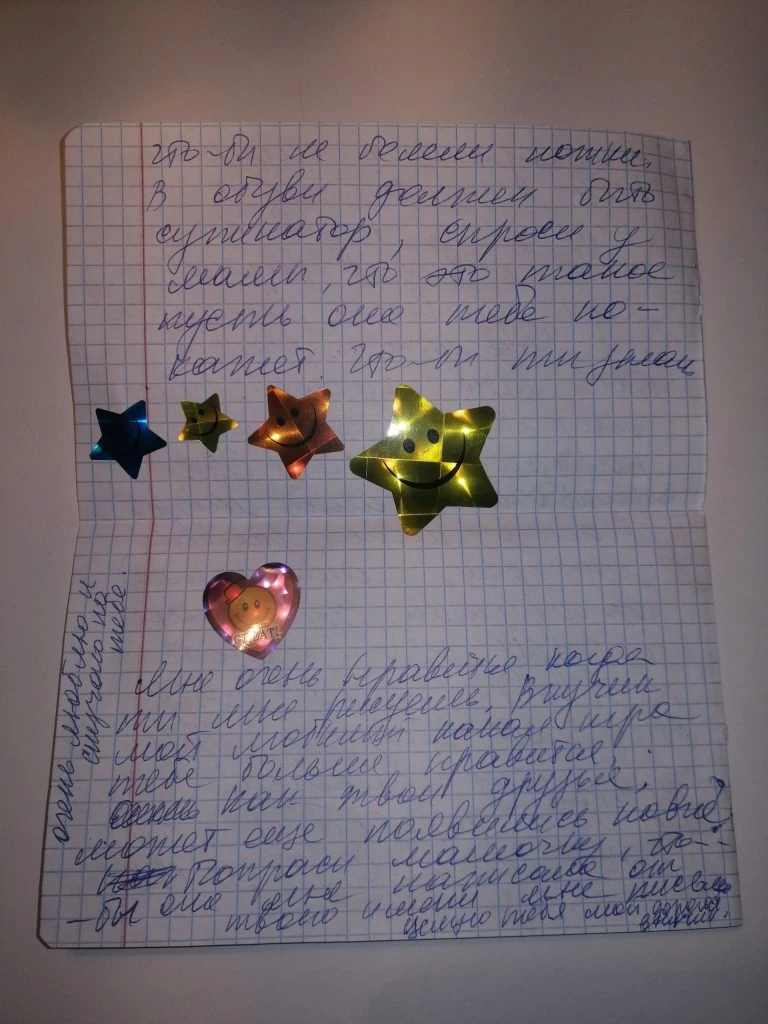 что-бы не болели ножки.
В обуви должен быть
супинатор, спроси у
мамы, что это такое
пусть она тебе по-
кажет. Что-бы ты знал
GREAT!
Мне очень нравится когда
ты мне рисуешь. Внучик
мой любимый какая игра
тебе больше нравится,
как твои друзья,
может еще появились новые?
Попроси мамочку, что-
-бы она мне написала от
твоего имени мне письмо
целую тебя мой дорогой
внучик.
очень люблю и
скучаю по
тебе.